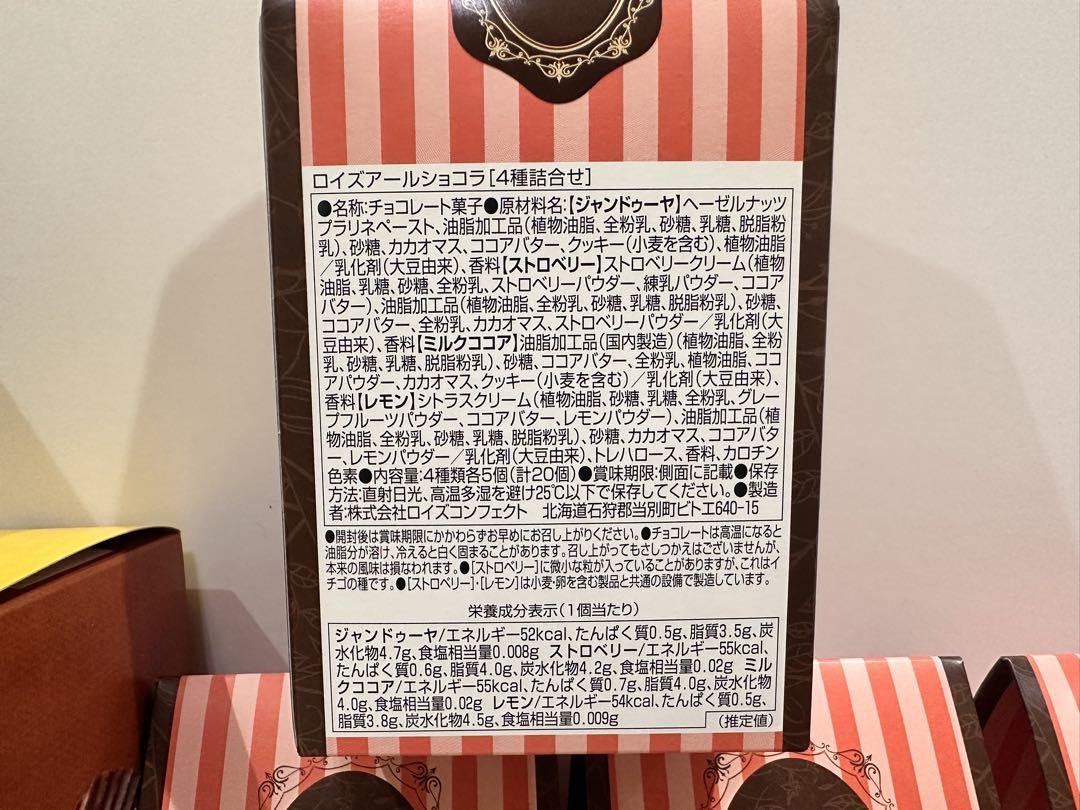 ロイズアールショコラ[4種詰合せ]
●名称:チョコレート菓子●原材料名:【ジャンドゥーヤ】ヘーゼルナッツ
プラリネペースト、油脂加工品(植物油脂、全粉乳、砂糖、乳糖、脱脂粉
乳)、砂糖、カカオマス、ココアバター、クッキー(小麦を含む)、植物油脂
/乳化剤(大豆由来)、香料【ストロベリー】ストロベリークリーム(植物
油脂、乳糖、砂糖、全粉乳、ストロベリーパウダー、練乳パウダー、ココア
バター)、油脂加工品(植物油脂、全粉乳、砂糖、乳糖、脱脂粉乳)、砂糖、
ココアバター、全粉乳、カカオマス、ストロベリーパウダー/乳化剤(大
豆由来)、香料【ミルクココア】油脂加工品(国内製造)(植物油脂、全粉
乳、砂糖、乳糖、脱脂粉乳)、砂糖、ココアバター、全粉乳、植物油脂、ココ
アパウダー、カカオマス、クッキー(小麦を含む)/乳化剤(大豆由来)、
香料【レモン】シトラスクリーム(植物油脂、砂糖、乳糖、全粉乳、グレー
プフルーツパウダー、ココアバター、レモンパウダー)、油脂加工品(植
物油脂、全粉乳、砂糖、乳糖、脱脂粉乳)、砂糖、カカオマス、ココアバタ
ー、レモンパウダー/乳化剤(大豆由来)、トレハロース、香料、カロチン
色素●内容量:4種類各5個(計20個)●賞味期限:側面に記載●保存
方法:直射日光、高温多湿を避け25℃以下で保存してください。●製造
者:株式会社ロイズコンフェクト 北海道石狩郡当別町ビトエ640-15
●開封後は賞味期限にかかわらずお早めにお召し上がりください。●チョコレートは高温になると
油脂分が溶け、冷えると白く固まることがあります。召し上がってもさしつかえはございませんが、
本来の風味は損なわれます。●[ストロベリー]に微小な粒が入っていることがありますが、これはイ
チゴの種です。●[ストロベリー]・[レモン]は小麦・卵を含む製品と共通の設備で製造しています。
栄養成分表示(1個当たり)
ジャンドゥーヤ/エネルギー52kcal、たんぱく質0.5g、脂質3.5g、炭
水化物4.7g、食塩相当量0.008g ストロベリー/エネルギー55kcal、
たんぱく質0.6g、脂質4.0g、炭水化物4.2g、食塩相当量0.02g ミル
クココア/エネルギー55kcal、たんぱく質0.7g、脂質4.0g、炭水化物
4.0g、食塩相当量0.02g レモン/エネルギー54kcal、たんぱく質0.5g、
脂質3.8g、炭水化物4.5g、食塩相当量0.009g (推定値)